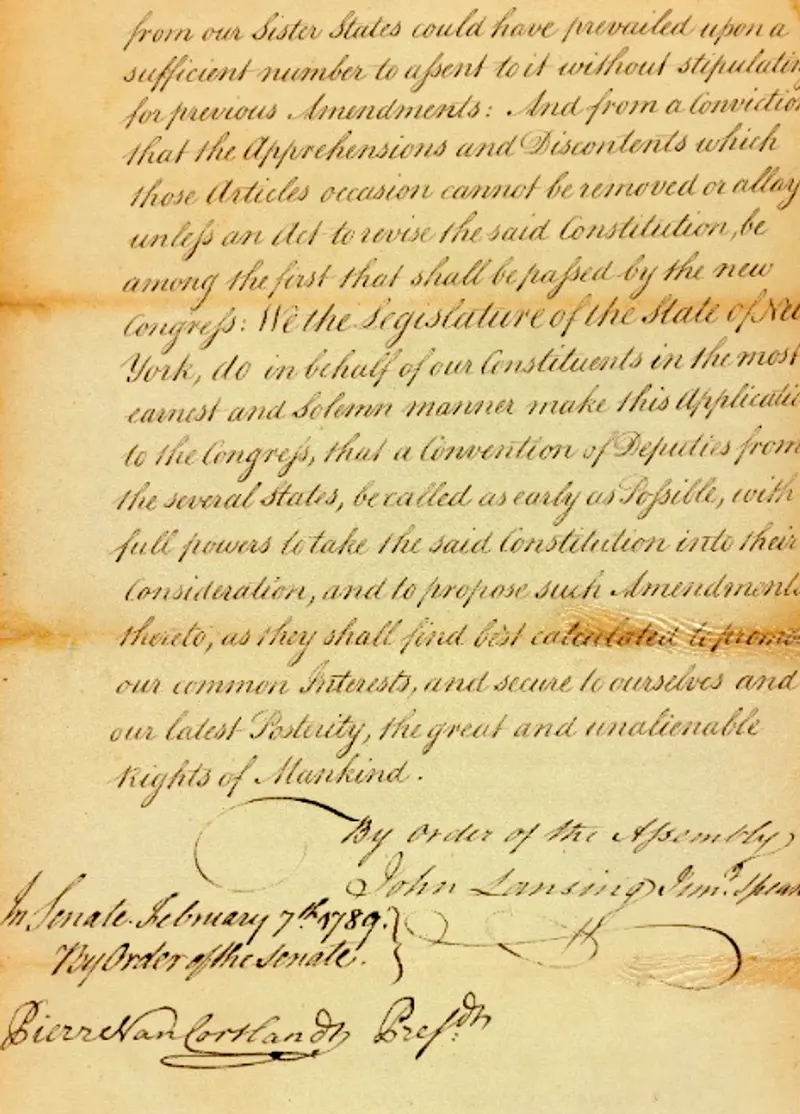 from our Sister States could have prevailed upon a
sufficient number to aſsent to it without stipulatin
for previous Amendments: And from a Convictio
that the Apprehensions and Discontents which
those Articles occasion cannot be removed or allay
unleſs an Act to revise the said Constitution, be
among the first that shall be paſsed by the new
Congreſs: We the Legislature of the State of New
York, do in behalf of our Constituents in the most
earnest and Solemn manner make this Applicatio
to the Congreſs, that a Convention of Deputies from
the several States, be called as early as Poſsible, with
full powers to take the said Constitution into their
Consideration, and to propose such Amendments
thereto, as they shall find best calculated to promo
our common Interests, and secure to ourselves and
our latest Posterity, the great and unalienable
Rights of Mankind.
By Order of the Aſsembly
John Lansing Junr. Speak
In Senate February 7th. 1789.
By Order of the Senate.
Pierre Van Cortlandt Presdt.